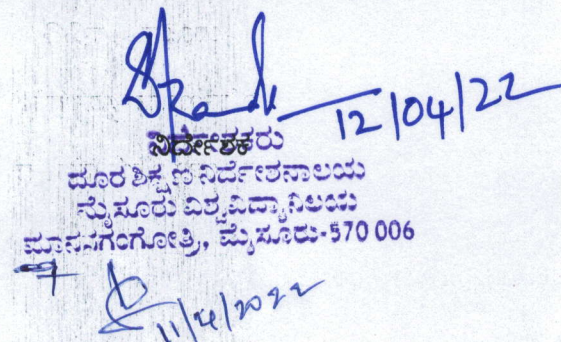 12/04/22
ನಿರ್ದೇಶಕರು
ದೂರ ಶಿಕ್ಷಣ ನಿರ್ದೇಶನಾಲಯ
ಮೈಸೂರು ವಿಶ್ವವಿದ್ಯಾನಿಲಯ
ಮಾನಸಗಂಗೋತ್ರಿ, ಮೈಸೂರು-570 006
11/4/2022